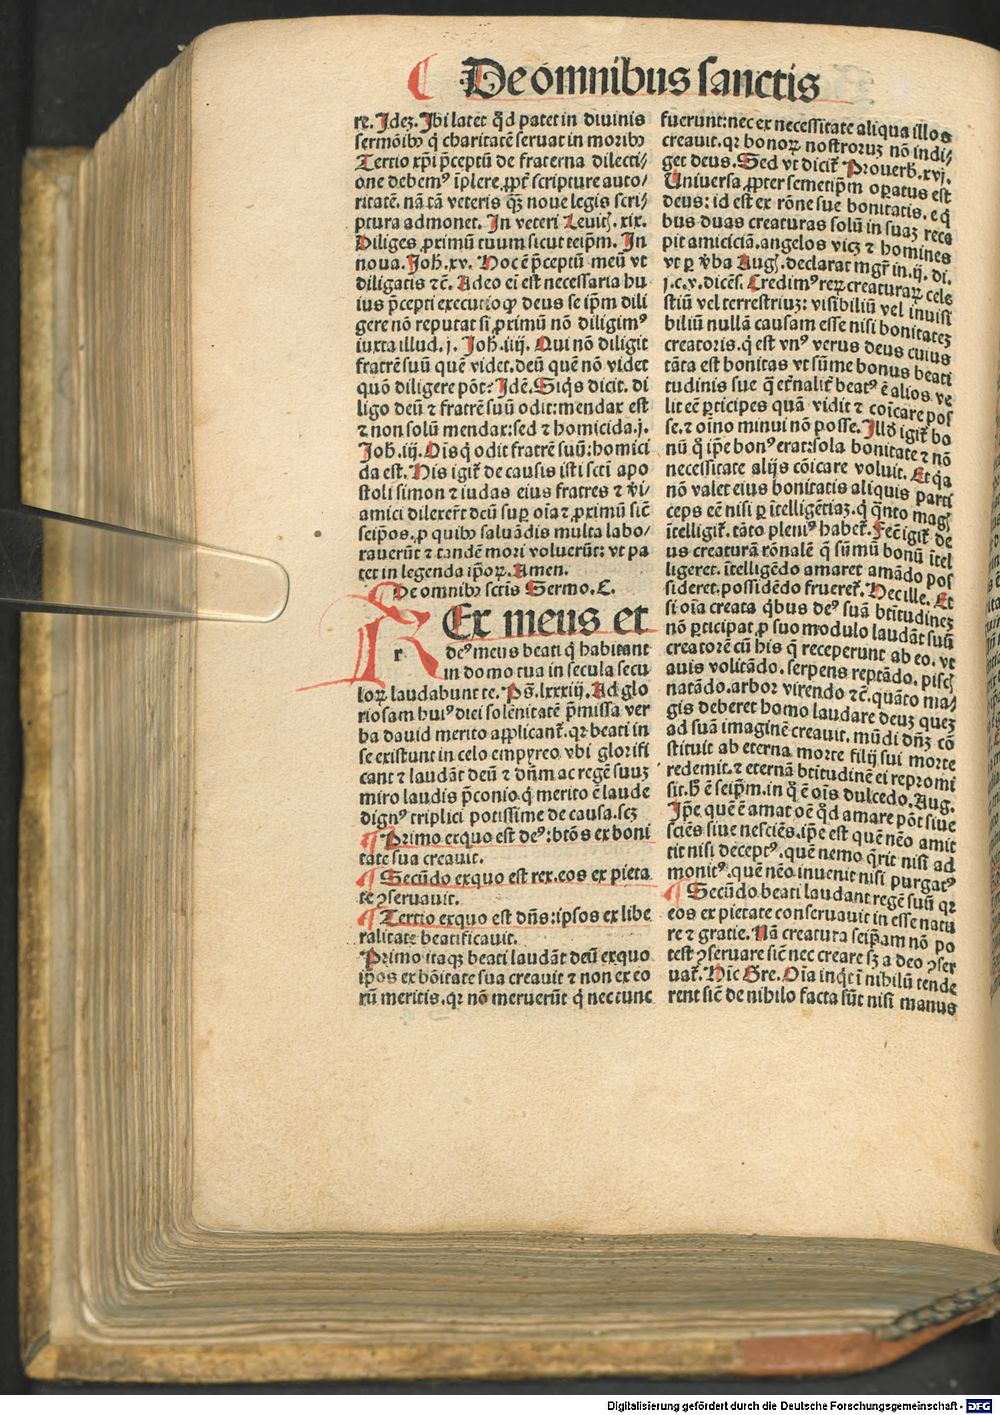 De omnibus sanctis
re. Idez. Ibi latēt qd̄ patet in diuinis
sermōibꝰ q̄ charitatē seruat in moribꝰ
Tertio xp̄i p̄ceptū de fraterna dilecti/
one debemꝰ īplere, ꝓpt̄ scripture auto/
ritatē. nā tā veteris qꝫ noue legis scri/
ptura admonet. In veteri Leuit̄. xix.
Diliges ꝓximū tuum sicut teip̄m. In
noua. Joh̄. xv. Hoc ē p̄ceptū meū vt
diligatis ⁊c̄. Adeo ei est necessaria hu
ius p̄cepti executio ꝙ deus se ip̄m dili
gere nō reputat si ꝓximū nō diligimꝰ
iuxta illud. j. Joh̄. iiij. Qui nō diligit
fratrē suū quē videt. deū quē nō videt
quō diligere pōt? Idē. Siqꝰs dicit. di
ligo deū ⁊ fratrē suū odit: mendax est
⁊ non solū mendax: sed ⁊ homicida. j.
Joh̄. iij. Oīsq̄ odit fratrē suū: homici
da est. His igit̄ de causis isti scti apo
stoli simon ⁊ iudas eius fratres ⁊ vi/
amici dilexert̄ deū suꝑ oīa ⁊ ꝓximū sic̄
seip̄os. ꝓ quibꝰ saluādis multa labo/
rauerūt ⁊ tandē mori voluerūt: vt pa
tet in legenda ip̄oꝝ. Amen.
De omnibꝰ sctīs Sermo. C.
REx meus et
r
deꝰ meus beati q̄ habitant
in domo tua in secula secu
loꝝ laudabunt te. Ps̄. lxxxiij. Ad glo
riosam huiꝰ diei solēnitatē p̄missa ver
ba dauid merito applicant̄. qꝛ beati in
se existunt in celo empyreo vbi glorifi
cant ⁊ laudāt deū ⁊ dn̄m ac regē suuꝫ
miro laudis p̄conio q̄ merito ē laude
dignꝰ triplici potissime de causa. scꝫ
¶ Primo exquo est deꝰ: btōs ex boni
tate sua creauit.
¶ Secūdo exquo est rex. eos ex pieta
te ꝯseruauit.
¶ Tertio exquo est dn̄s: ipsos ex libe
ralitate beatificauit.
Primo itaqꝫ beati laudāt deū exquo
ip̄os ex bōitate sua creauit ⁊ non ex eo
rū meritis. qꝛ nō meruerūt q̄ nec tunc
fuerunt: nec ex necessitate aliqua illos
creauit. qꝛ bonoꝝ nostroruꝫ nō indi/
get deus. Sed vt dicit̄ Prouerb̄. xvj.
Uniuersa ꝓpter semetip̄m oꝑatus est
deus: id est ex rōne sue bonitatis. e q̄
bus duas creaturas solū in suaꝫ rece
pit amiciciā. angelos vicꝫ ⁊ homines
vt ꝑ v̄ba Augꝰ. declarat mgr̄ in. ij. di.
j. c. v. dicēs. Credimꝰ reꝝ creaturaꝝ cele
stiū vel terrestriuꝫ: visibiliū vel inuisi
biliū nullā causam esse nisi bonitateꝫ
creatoris. q̄ est vnꝰ verus deus cuius
tāta est bonitas vt sūme bonus beati
tudinis sue q̄ et̄nalit̄ beatꝰ ē alios ve
lit eē ꝑticipes quā vidit ⁊ cōicare pos
se. ⁊ oīno minui nō posse. Illd̄ igit̄ bo
nū q̄ ip̄e bonꝰ erat: sola bonitate ⁊ nō
necessitate alijs cōicare voluit. Et q̄a
nō valet eius bonitatis aliquis parti
ceps eē nisi ꝑ ītelligētiaꝫ. q̄ q̄nto magꝭ
ītelligit̄. tāto pleniꝰ habet̄. Fec̄ igit̄ de
us creaturā rōnalē q̄ sūmū bonū ītel
ligeret. ītelligēdo amaret amādo pos
sideret. possidēdo frueret̄. Hec ille. Et
si oīa creata q̄bus deꝰ suā btitudineꝫ
nō ꝑticipat, ꝓ suo modulo laudāt suū
creatorē cū his q̄ receperunt ab eo. vt
auis volitādo. serpens reptādo. piscꝭ
natādo. arbor virendo ⁊c̄. quāto ma/
gis deberet homo laudare deuꝫ queꝫ
ad suā imaginē creauit. mūdi dn̄ꝫ cō
stituit ab eterna morte filij sui morte
redemit. ⁊ eternā btitudinē ei repromi
sit. h̄ ē seip̄m. in q̄ ē oīs dulcedo. Aug.
Ip̄e quē ē amat oē qd̄ amare pōt siue
sciēs siue nesciēs. ip̄e est quē nēo amit
tit nisi deceptꝰ. quē nemo q̄rit nisi ad
monitꝰ. quē nēo inuenit nisi purgatꝰ
¶ Secūdo beati laudant regē suū qꝛ
eos ex pietate conseruauit in esse natu
re ⁊ gratie. Nā creatura seip̄am nō po
test ꝯseruare sic̄ nec creare sꝫ a deo ꝯser
uat̄. Hic̄ Gre. Oīa inq̄t ī nihilū tende
rent sic̄ de nihilo facta sūt nisi manus
Digitalisierung gefördert durch die Deutsche Forschungsgemeinschaft - DFG